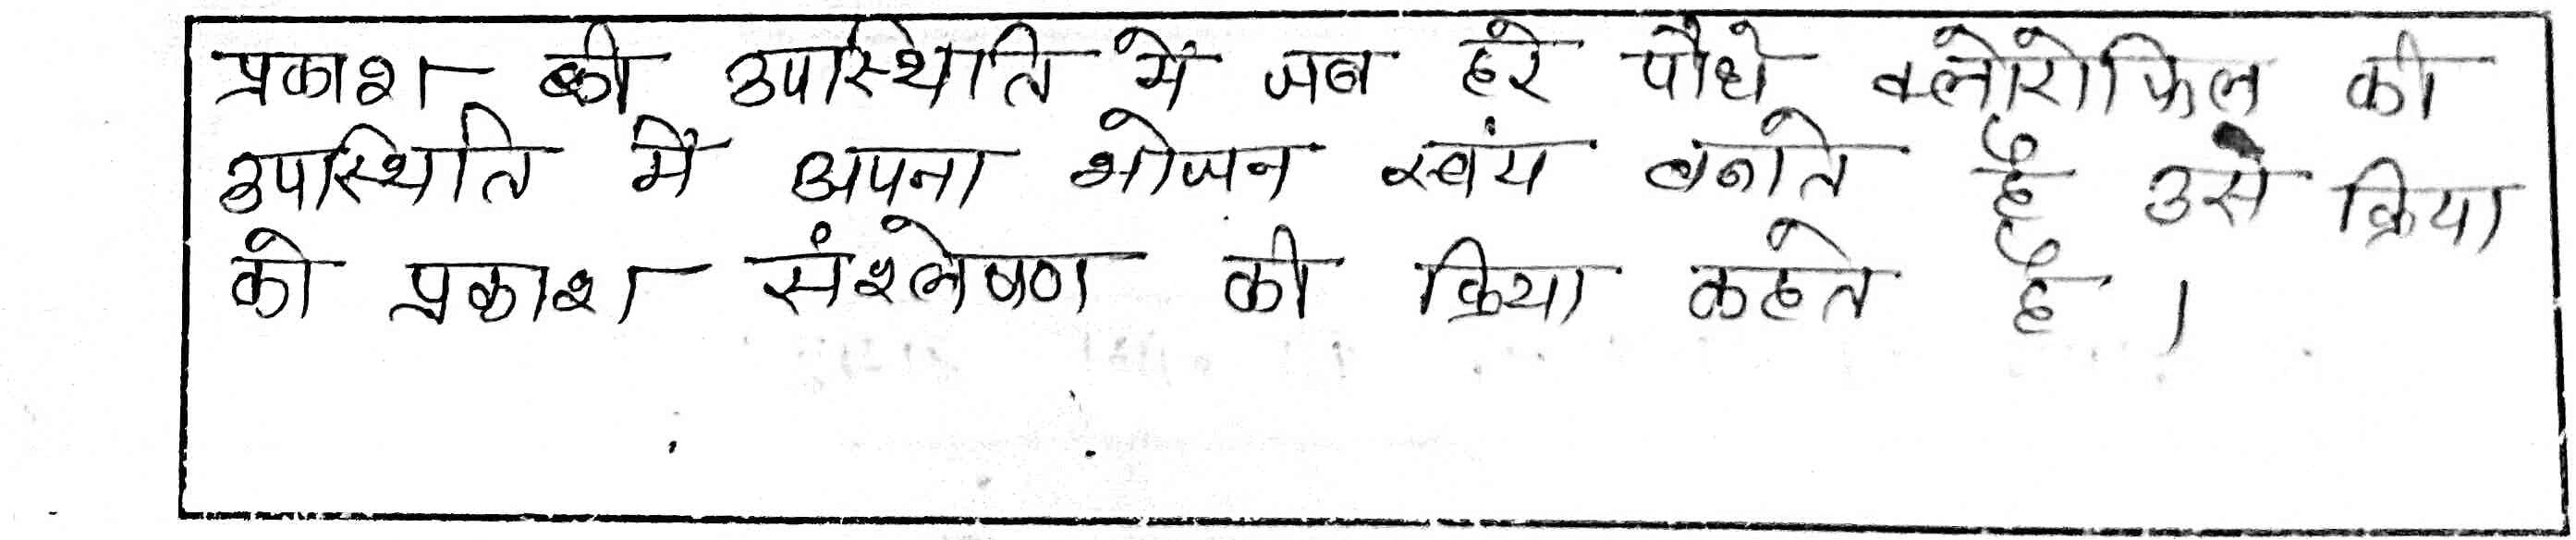 प्रकाश की उपस्थिति में जब हरे पौधे क्लोरोफिल की
उपस्थिति में अपना भोजन स्वंय बनाते है उसे क्रिया
को प्रकाश संश्लेषण की क्रिया कहते है ।